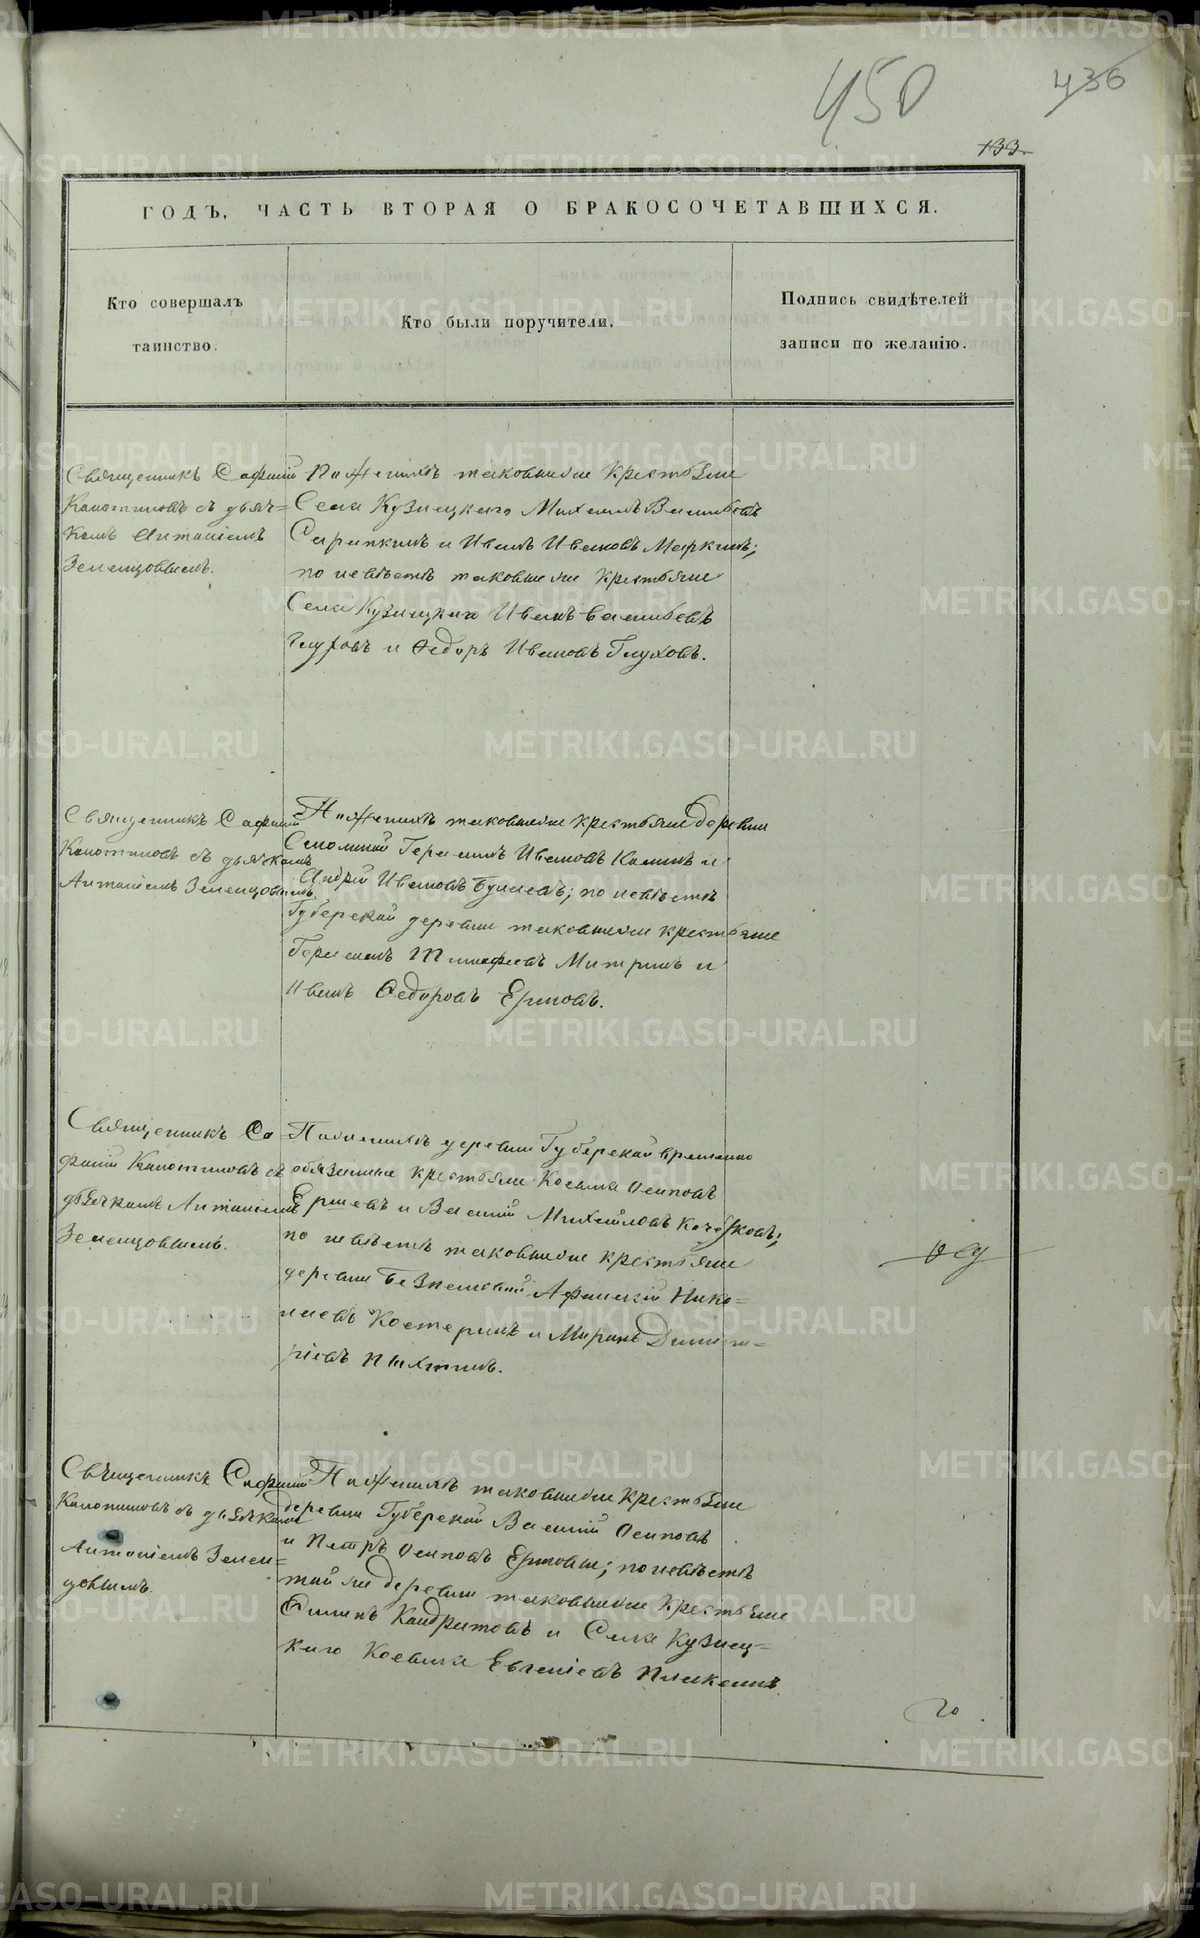 450
436
133.
ГОДЪ, ЧАСТЬ ВТОРАЯ О БРАКОСОЧЕТАВШИХСЯ.
Кто совершалъ
таинство.
Кто были поручители.
Подпись свидѣтелей
записи по желанію.
Священникъ Сафоній
Капотиновъ съ дьяч=
комъ Антоніемъ
Земенцовымъ.
По женихѣ таковыеже крестьяне
Села Кузнецкаго Михаилъ Васильевъ
и Иванъ Ивановъ Маркинъ;
по невѣстѣ таковыеже крестьяне
Села Кузнецкаго Иванъ Васильевъ
Глуховъ и Ѳедоръ Ивановъ Глуховъ.
Священникъ Сафоній
Капотиновъ съ дьячкомъ
Антоніемъ Земенцовымъ.
По женихѣ таковыеже крестьяне деревни
Смолиной Герасимъ Ивановъ и
Андрей Ивановъ; по невѣстѣ
Губерской деревни таковыеже крестьяне
Герасимъ Тимофеевъ Митринъ и
Иванъ Ѳедоровъ Ершовъ.
Священникъ Са=
фоній Капотиновъ съ
дьячкомъ Антоніемъ
Земенцовымъ.
По женихѣ деревни Губерской временно
обязанные крестьяне Косьма Осиповъ
Ершевъ и Василій Михайловъ;
по невѣстѣ таковыеже крестьяне
деревни Афанасій Нико=
лаевъ Костеринъ и Миронъ Димит=
ріевъ Пыхтинъ.
Священникъ Сафоній
Капотиновъ съ дьячкомъ
Антоніемъ Земен=
цовымъ.
По женихѣ таковыеже крестьяне
деревни Губерской Василій Осиповъ
и Петръ Осиповъ Ершовы; по невѣстѣ
той же деревни таковыеже крестьяне
Кандратовъ и Села Кузнец=
каго Косьма Евгеніевъ
METRIKI.GASO-URAL.RU